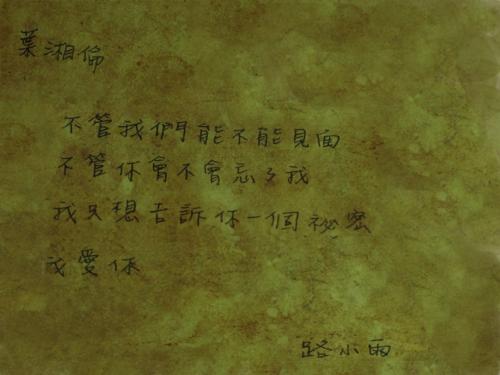 葉湘倫
不管我們能不能見面
不管你會不會忘了我
我只想告訴你一個祕密
我愛你
路小雨